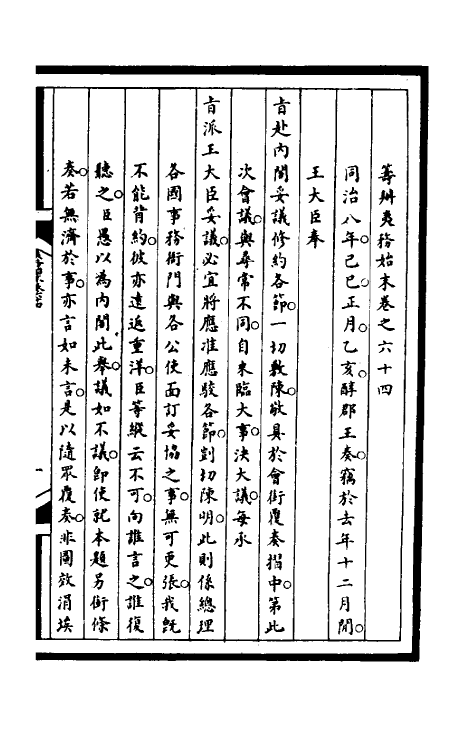 籌辦夷務始末卷之六十四
同治八年。己巳正月。乙亥醇郡王奏。竊於去年十二月間。
王大臣奉
旨赴內閣妥議修約各節。一切敷陳。敬具於會銜覆奏摺中。第此
次會議。與尋常不同。自來臨大事。決大議。每承
旨派王大臣妥議。必宜將應准應駁各節。剴切陳明。此則係總理
各國事務衙門與各公使面訂妥協之事。無可更張。我既
不能背約。彼亦遠返重洋。臣等縱云不可。向誰言之。誰復
聽之。臣愚以為內閣此舉。議如不議。卽使就本題另銜條
奏。若無濟於事。亦言如未言。是以隨眾覆奏。非圖效涓埃